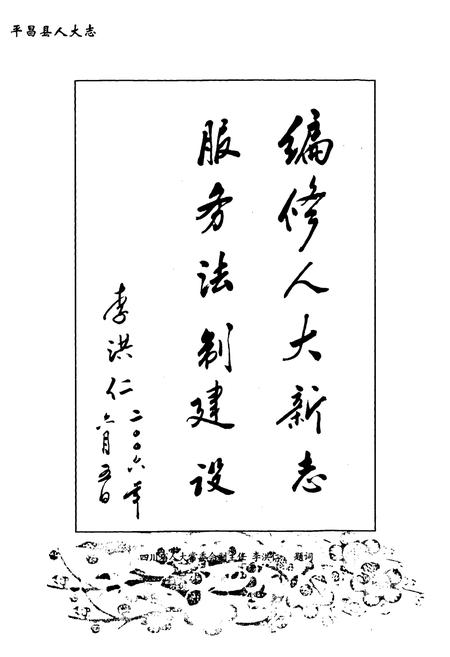 平昌县人大志
编修人大新志
服务法制建设
李洪仁
二〇〇六年
六月五日
四川省人大常委会副主任 李洪仁 题词